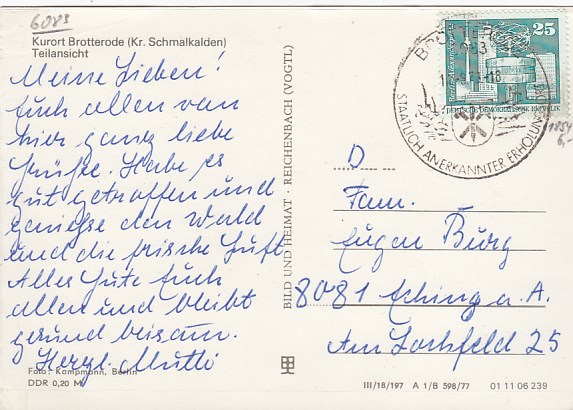 6083
Kurort Brotterode (Kr. Schmalkalden)
Teilansicht
Meine Lieben!
Euch allen von
hier ganz liebe
Grüße. Habe es
gut getroffen und
genieße den Wald
und die frische Luft
Alles Gute Euch
allen und bleibt
gesund beisam.
Herzl. Mutti
Foto: Kampmann, Berlin
DDR 0,20 M
BILD UND HEIMAT · REICHENBACH (VOGTL)
25
DEUTSCHE DEMOKRATISCHE REPUBLIK
STAATLICH ANERKANNTER ERHOLUNGSORT
6,-
D
Fam.
Eugen Burg
8081 Eching a. A.
Am Lochfeld 25
III/18/197 A 1/B 598/77 01 11 06 239